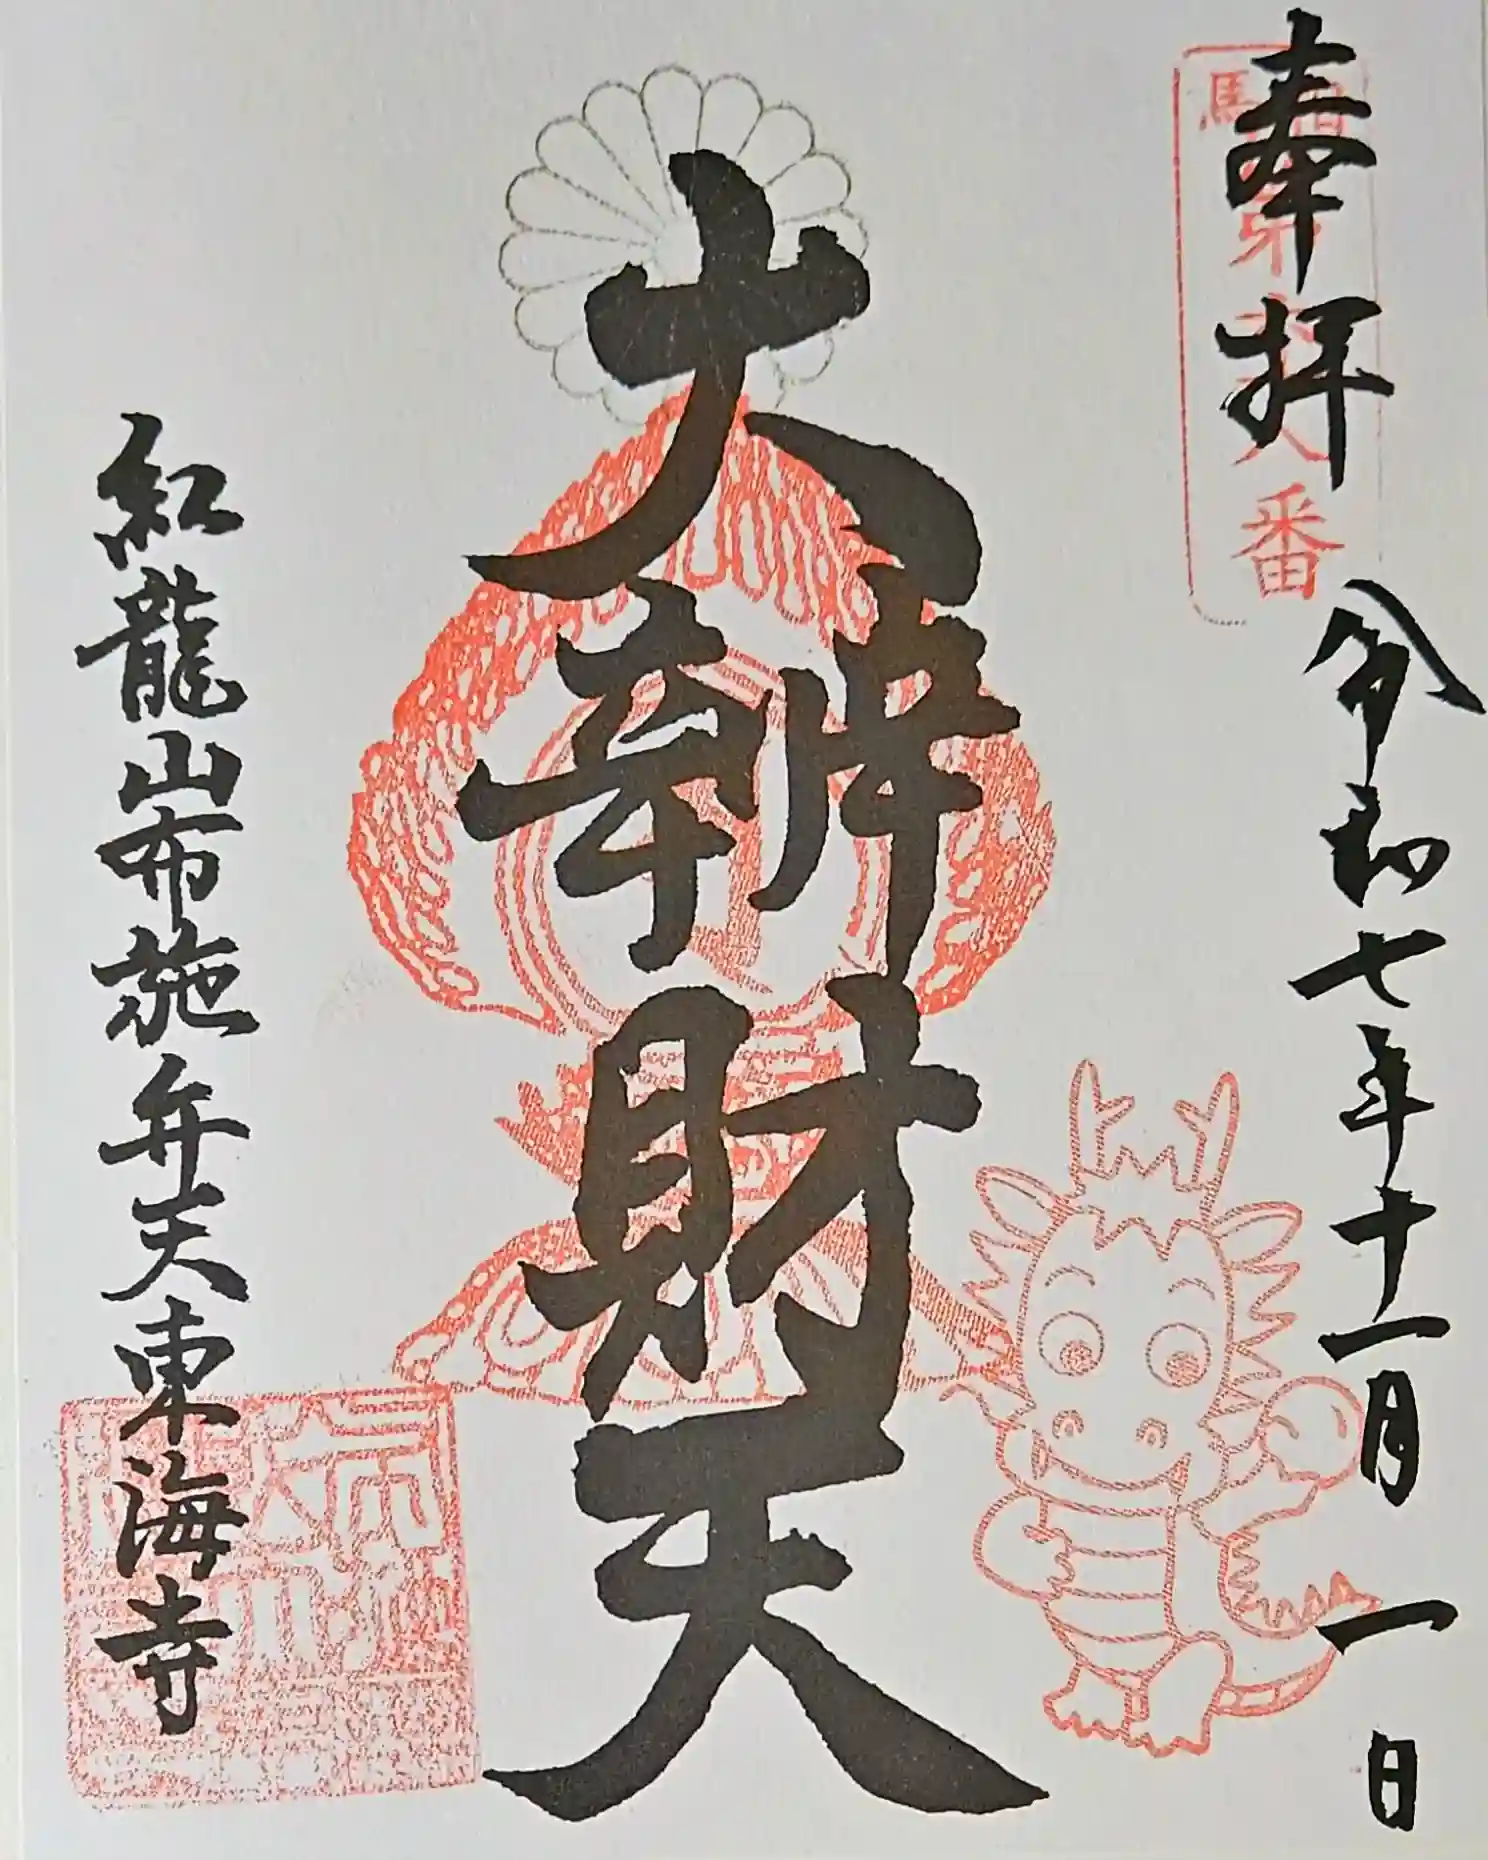 奉拝
相馬第
番
令和七年十一月一日
大辨財天
紅龍山布施弁天東海寺